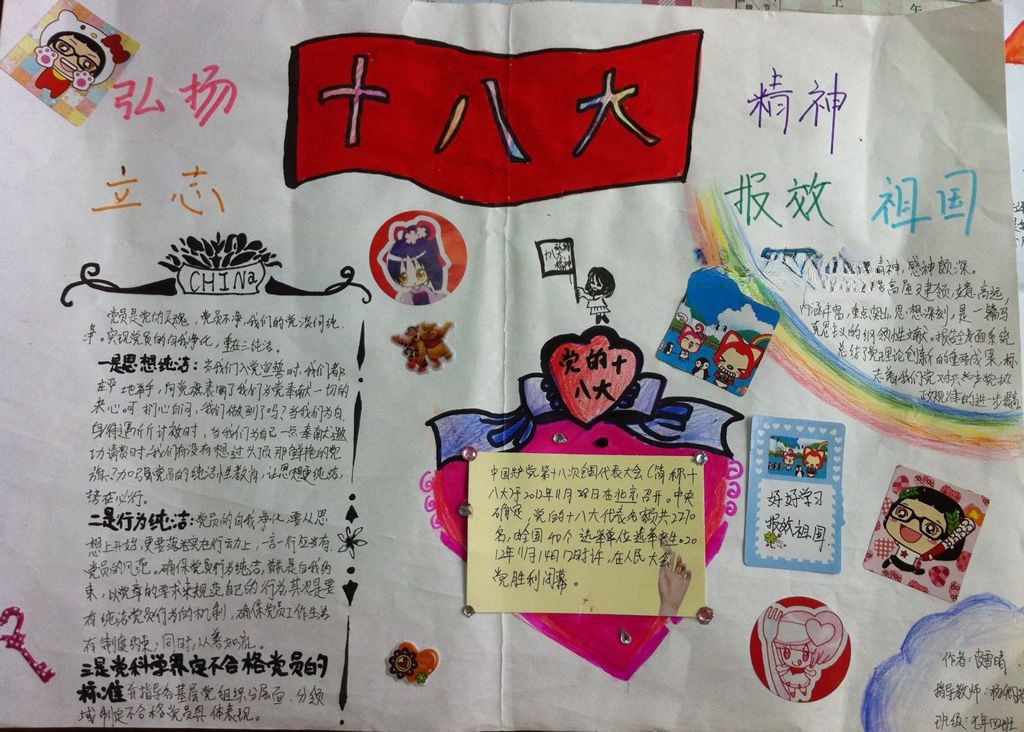 弘扬
十八大
精神
立志
报效 祖国
CHINa
党员是党的灵魂，党员不净，我们的党没何纯
净。实现党员的自我净化，重在三纯洁。
一是思想纯洁：当我们入党宣誓时，我们都
在平地举手，向党旗表明了我们为党奉献一切的
决心。可扪心自问，我们做到了吗？当我们为自
功请赏时，我们有没有想过
势在必行。
二是行为纯洁：党员的自我净化要从思
想上开始，更要落实在行动上，一言一行应当有
党员的风范。确保党员行为纯洁，就是自我约
束，以党章的要求来规范自己的行为其次是要
有纯洁党员行为的机制，确保党员工作生活
有制度约束；同时，从善如流。
三是党科学界定不合格党员的
标准 在指导各基层党组织分层面、分领
域制定不合格党员具体表现。
十八 精神
党的十
八大
中国共产党第十八次全国代表大会（简称十
八大）于2012年11月8日在北京召开。中央
确定，党的十八大代表名额共2270
名，由全国40个选举单位选举产生。20
12年11月14日12时许，在人民大会
党胜利闭幕。
精神，感神颇深。
高屋建瓴，立意高远，
内涵丰富，重点突出，思想深刻，是一篇马
克思主义的纲领性文献。报告全面系统
总结了党理论创新的重要成果，标
志着我们党对共产党执
政规律的进一步
好好学习
报效祖国
作者：
指导教师：杨
班级：七年四班